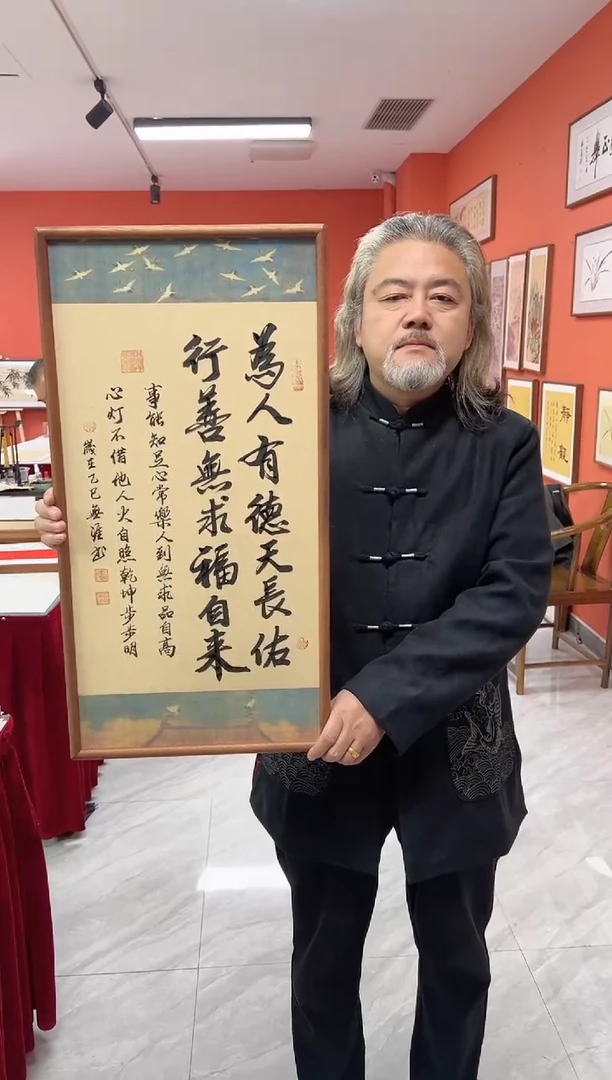 為人有德天長佑
行善無求福自来
事能知足心常樂人到無求品自高
心灯不借他人火自照乾坤步步明
歲在乙巳無涯書
靜觀